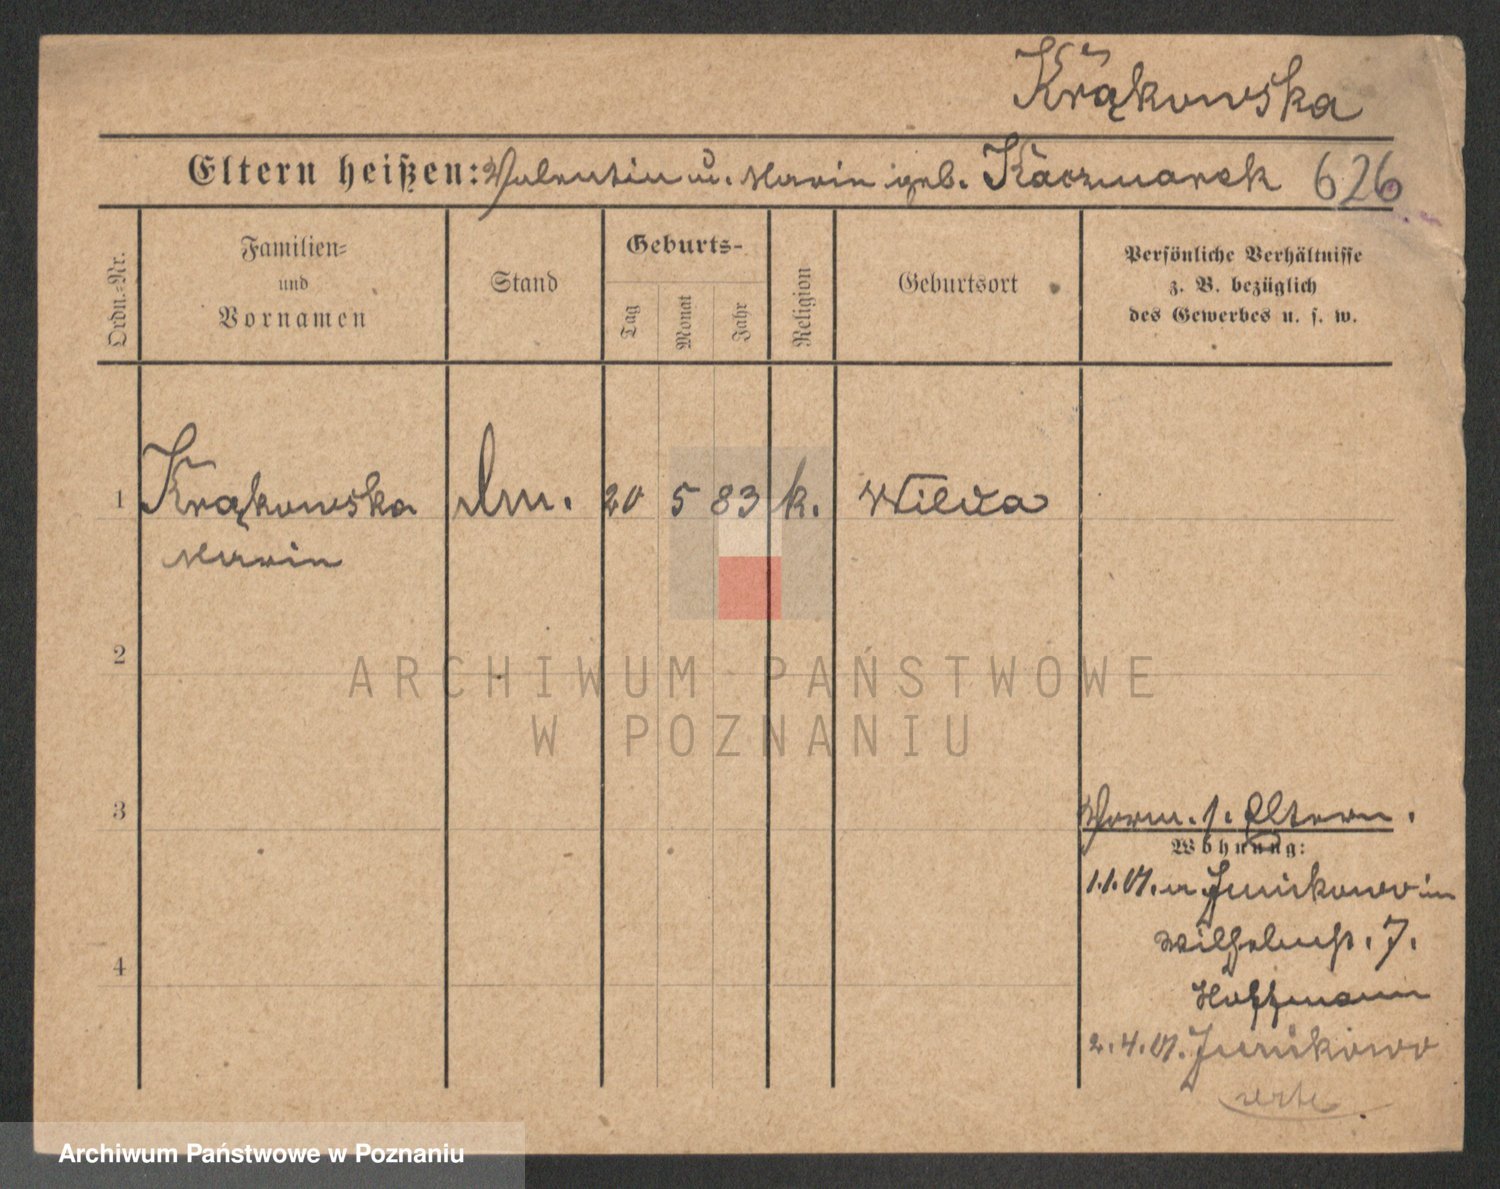 Krąkowska
Eltern heißen: Valentin u. Marie geb. Kaczmarek 626
Ordn.=Nr.
Familien=
und
Vornamen
Stand
Geburts-
Tag
Monat
Jahr
Religion
Geburtsort
Persönliche Verhältnisse
z. B. bezüglich
des Gewerbes u. s. w.
1 Krąkowska 20 5 83 k. Wilda
Marie
2
ARCHIWUM PAŃSTWOWE
W POZNANIU
3
Vorm. s. Eltern.
Wohnung:
1.1.07. Junikowo
Wilhelmst. 7.
4
Hoffmann
2.4.07. Junikowo
Archiwum Państwowe w Poznaniu